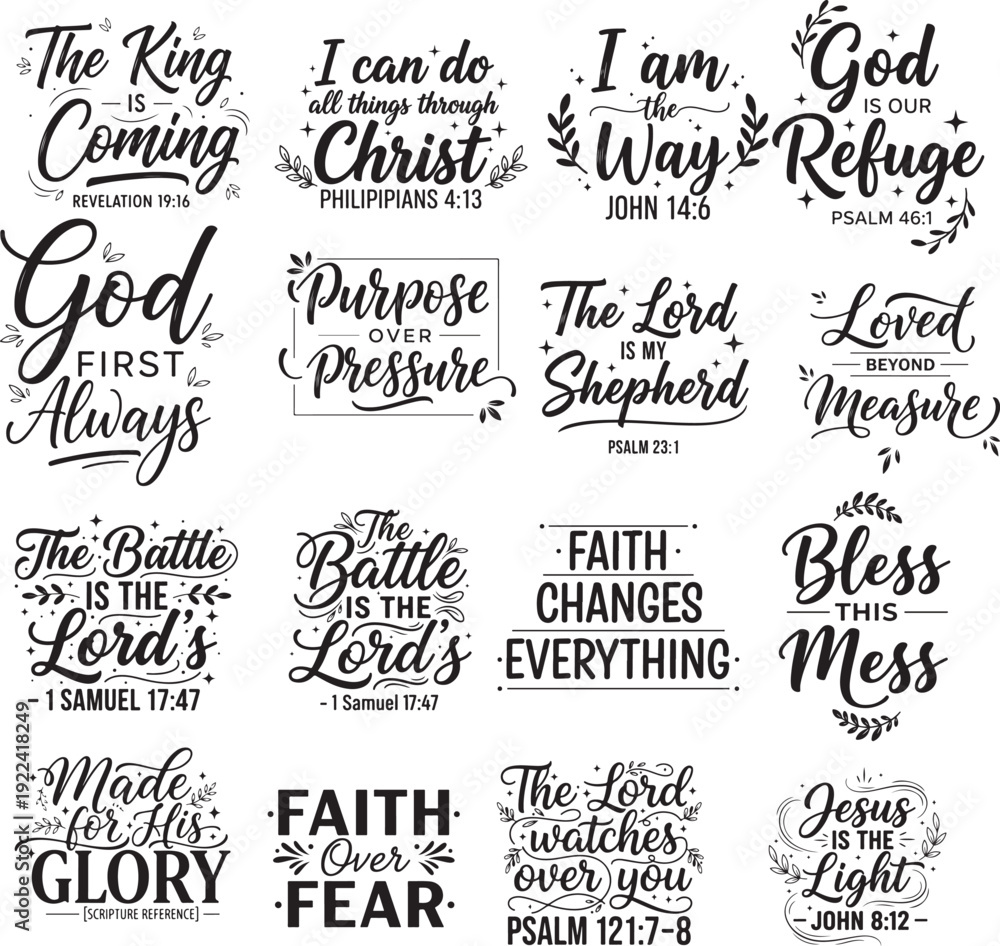 The King
IS
Coming
REVELATION 19:16
I can do
all things through
Christ
PHILIPIPIANS 4:13
I am
the
Way
JOHN 14:6
God
IS OUR
Refuge
PSALM 46:1
God
FIRST
Always
Purpose
OVER
Pressure
The Lord
IS MY
Shepherd
PSALM 23:1
Loved
BEYOND
Measure
The Battle
IS THE
Lord's
- 1 SAMUEL 17:47
The
Battle
IS THE
Lord's
- 1 Samuel 17:47
FAITH
CHANGES
EVERYTHING
Bless
THIS
Mess
Made
for His
GLORY
[SCRIPTURE REFERENCE]
FAITH
Over
FEAR
The Lord
watches
over you
PSALM 121:7-8
Jesus
IS THE
Light
- JOHN 8:12 -
Adobe Stock | #1922418249